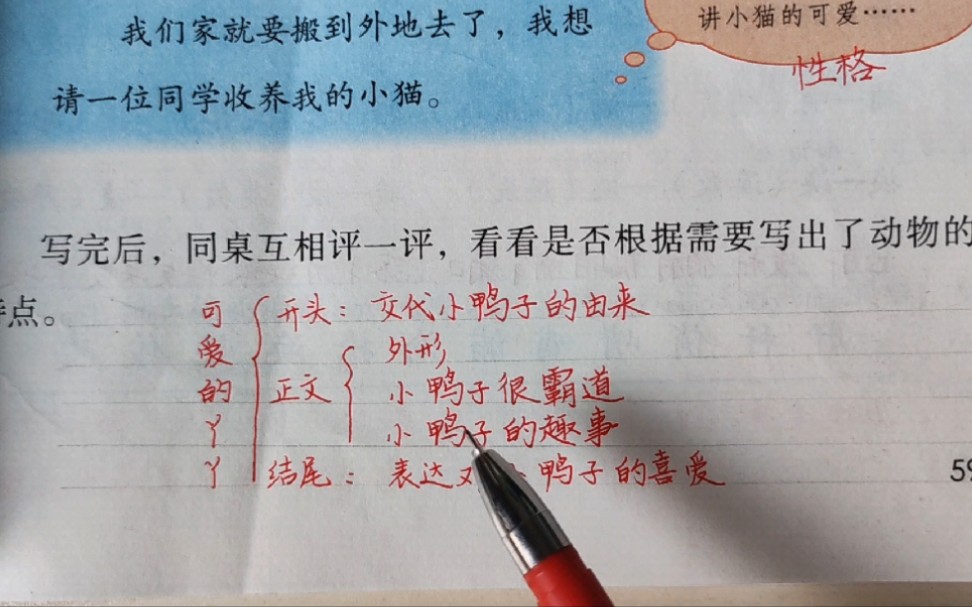 我们家就要搬到外地去了，我想
请一位同学收养我的小猫。
讲小猫的可爱……
性格
写完后，同桌互相评一评，看看是否根据需要写出了动物的
点。
可爱的丫丫
开头：交代小鸭子的由来
正文
外形
小鸭子很霸道
小鸭子的趣事
结尾：表达对 鸭子的喜爱
59